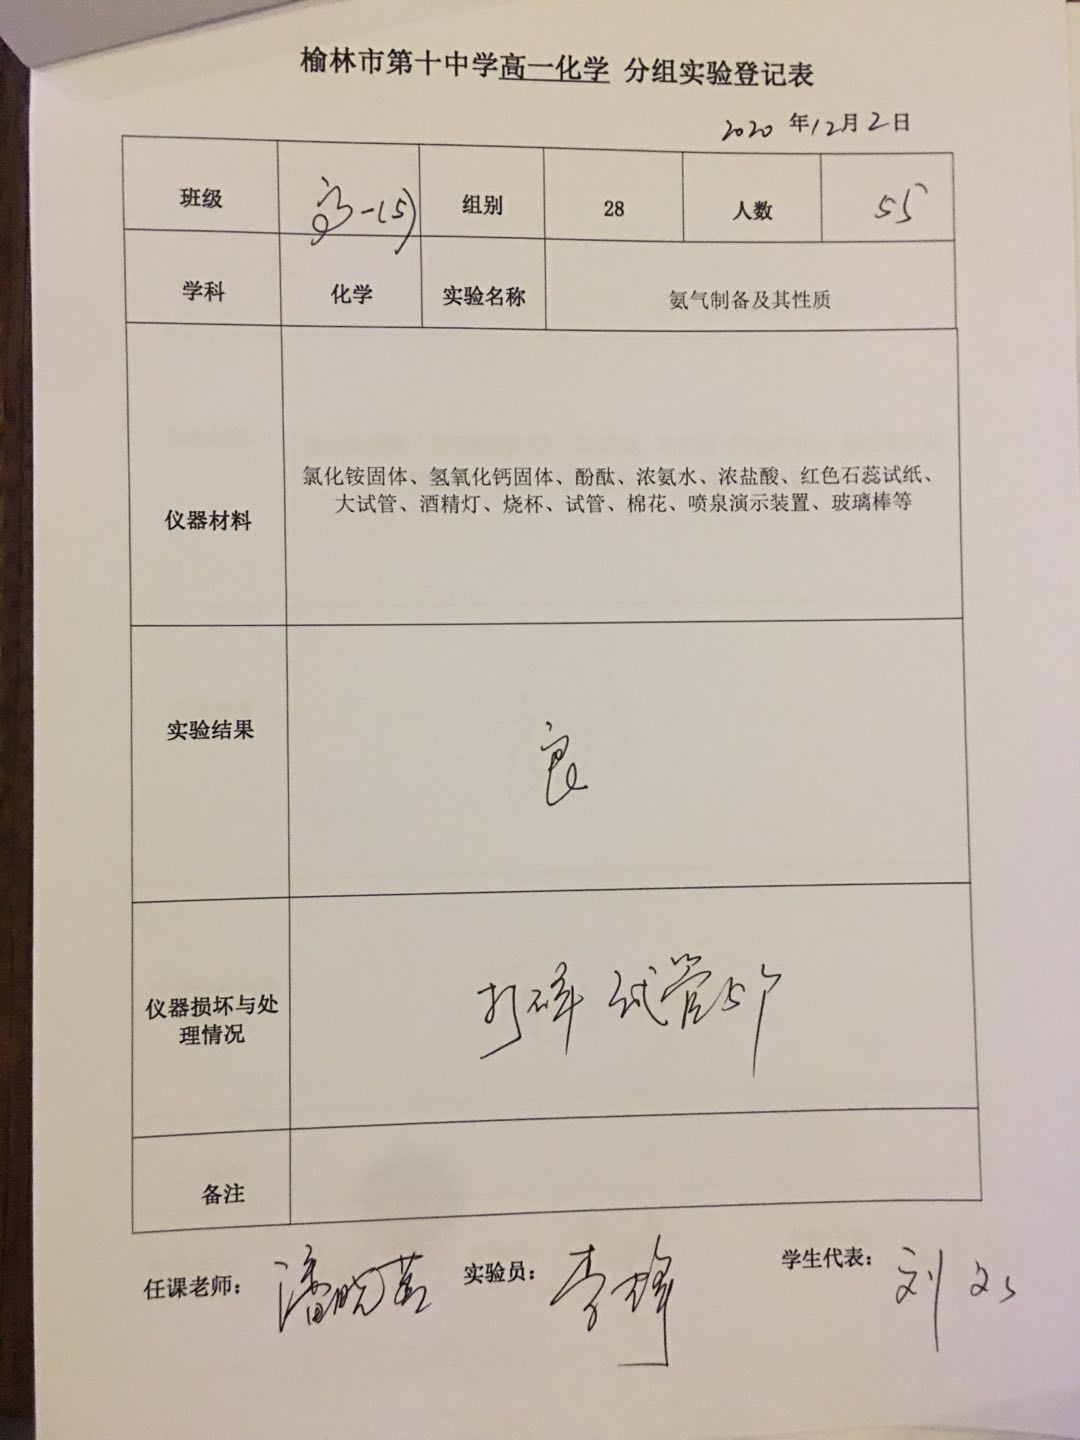 榆林市第十中学高一化学 分组实验登记表
2020 年12月2日
班级 高一(5) 组别 28 人数 55
学科 化学 实验名称 氨气制备及其性质
仪器材料
氯化铵固体、氢氧化钙固体、酚酞、浓氨水、浓盐酸、红色石蕊试纸、
大试管、酒精灯、烧杯、试管、棉花、喷泉演示装置、玻璃棒等
实验结果
良
仪器损坏与处
理情况
打碎 试管5个
备注
任课老师： 潘晓 实验员： 李 学生代表： 刘